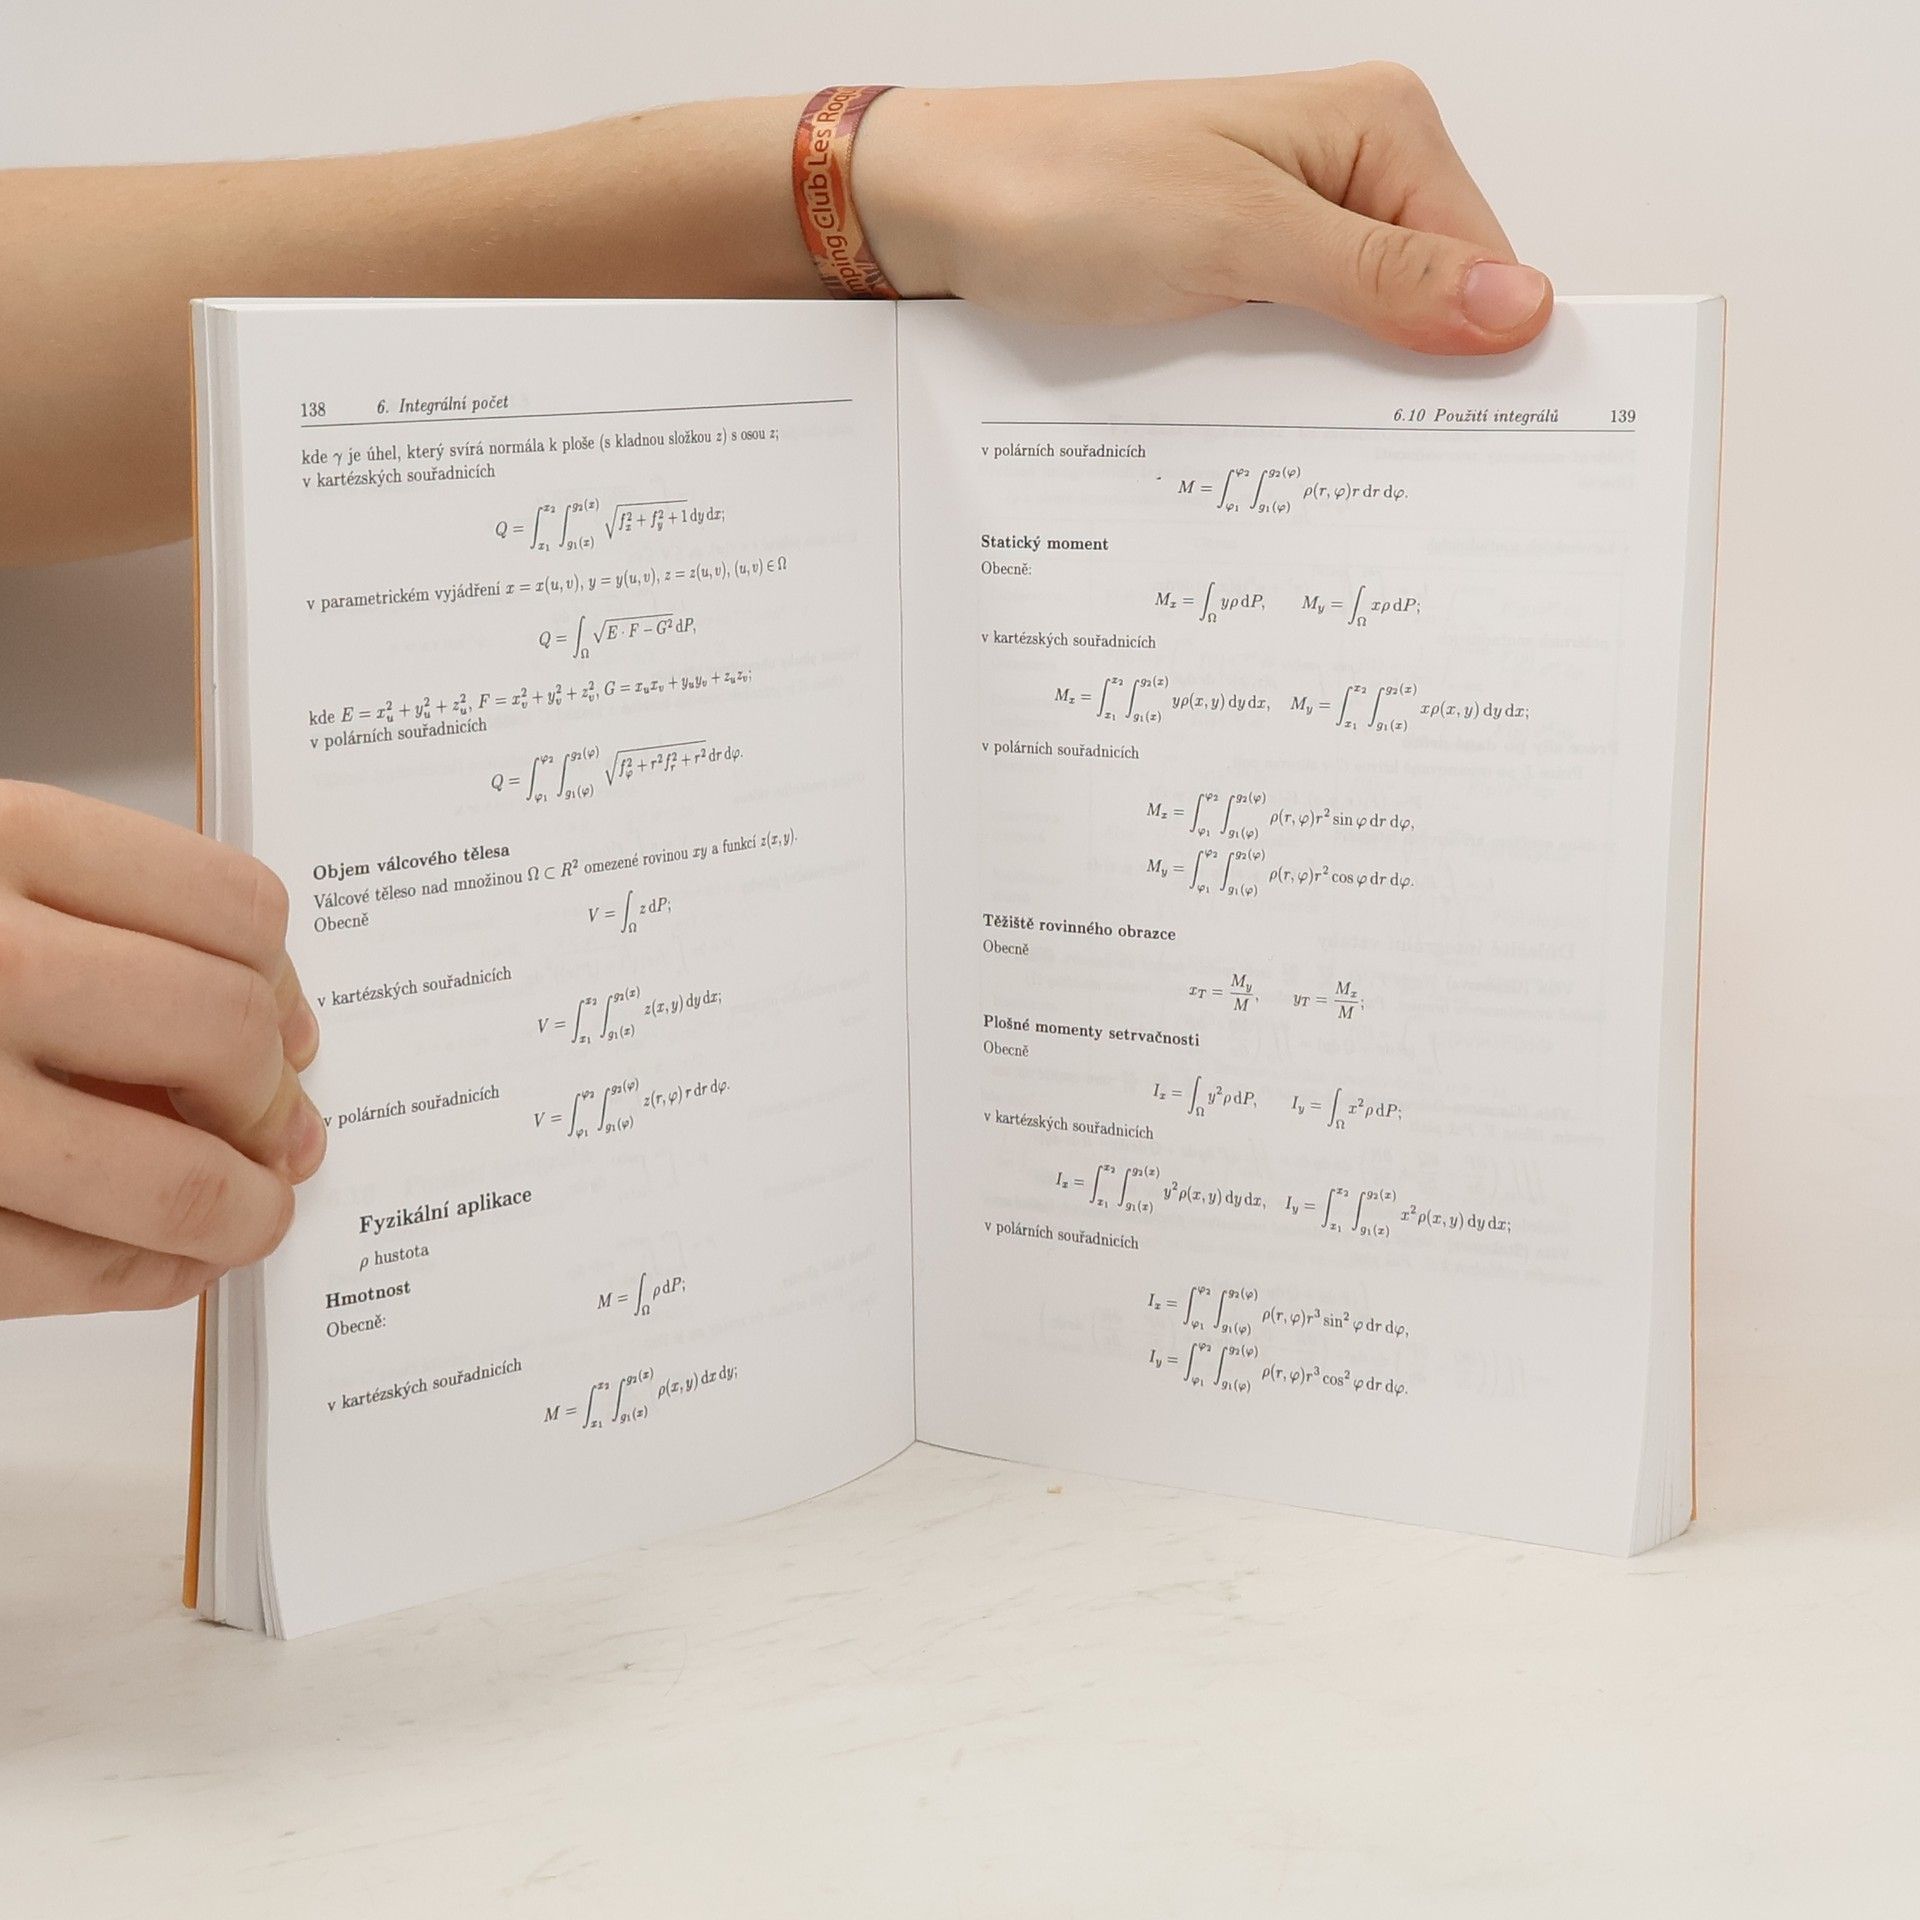 mping Club Les Roqu
138 6. Integrální počet
kde γ je úhel, který svírá normála k ploše (s kladnou složkou z) s osou z;
v kartézských souřadnicích
Q = ∫_{x₁}^{x₂} ∫_{g₁(x)}^{g₂(x)} √(f_x² + f_y² + 1) dy dx;
v parametrickém vyjádření x = x(u, v), y = y(u, v), z = z(u, v), (u, v) ∈ Ω
Q = ∫_Ω √(E · F − G²) dP,
kde E = x_u² + y_u² + z_u², F = x_v² + y_v² + z_v², G = x_u x_v + y_u y_v + z_u z_v;
v polárních souřadnicích
Q = ∫_{φ₁}^{φ₂} ∫_{g₁(φ)}^{g₂(φ)} √(f_φ² + r² f_r² + r²) dr dφ.
Objem válcového tělesa
Válcové těleso nad množinou Ω ⊂ R² omezené rovinou xy a funkcí z(x, y).
Obecně V = ∫_Ω z dP;
v kartézských souřadnicích
V = ∫_{x₁}^{x₂} ∫_{g₁(x)}^{g₂(x)} z(x, y) dy dx;
v polárních souřadnicích
V = ∫_{φ₁}^{φ₂} ∫_{g₁(φ)}^{g₂(φ)} z(r, φ) r dr dφ.
Fyzikální aplikace
ρ hustota
Hmotnost
Obecně: M = ∫_Ω ρ dP;
v kartézských souřadnicích
M = ∫_{x₁}^{x₂} ∫_{g₁(x)}^{g₂(x)} ρ(x, y) dx dy;
6.10 Použití integrálů 139
v polárních souřadnicích
M = ∫_{φ₁}^{φ₂} ∫_{g₁(φ)}^{g₂(φ)} ρ(r, φ)r dr dφ.
Statický moment
Obecně:
M_x = ∫_Ω yρ dP, M_y = ∫_Ω xρ dP;
v kartézských souřadnicích
M_x = ∫_{x₁}^{x₂} ∫_{g₁(x)}^{g₂(x)} yρ(x, y) dy dx, M_y = ∫_{x₁}^{x₂} ∫_{g₁(x)}^{g₂(x)} xρ(x, y) dy dx;
v polárních souřadnicích
M_x = ∫_{φ₁}^{φ₂} ∫_{g₁(φ)}^{g₂(φ)} ρ(r, φ)r² sin φ dr dφ,
M_y = ∫_{φ₁}^{φ₂} ∫_{g₁(φ)}^{g₂(φ)} ρ(r, φ)r² cos φ dr dφ.
Těžiště rovinného obrazce
Obecně
x_T = M_y/M, y_T = M_x/M;
Plošné momenty setrvačnosti
Obecně
I_x = ∫_Ω y²ρ dP, I_y = ∫_Ω x²ρ dP;
v kartézských souřadnicích
I_x = ∫_{x₁}^{x₂} ∫_{g₁(x)}^{g₂(x)} y²ρ(x, y) dy dx, I_y = ∫_{x₁}^{x₂} ∫_{g₁(x)}^{g₂(x)} x²ρ(x, y) dy dx;
v polárních souřadnicích
I_x = ∫_{φ₁}^{φ₂} ∫_{g₁(φ)}^{g₂(φ)} ρ(r, φ)r³ sin² φ dr dφ,
I_y = ∫_{φ₁}^{φ₂} ∫_{g₁(φ)}^{g₂(φ)} ρ(r, φ)r³ cos² φ dr dφ.